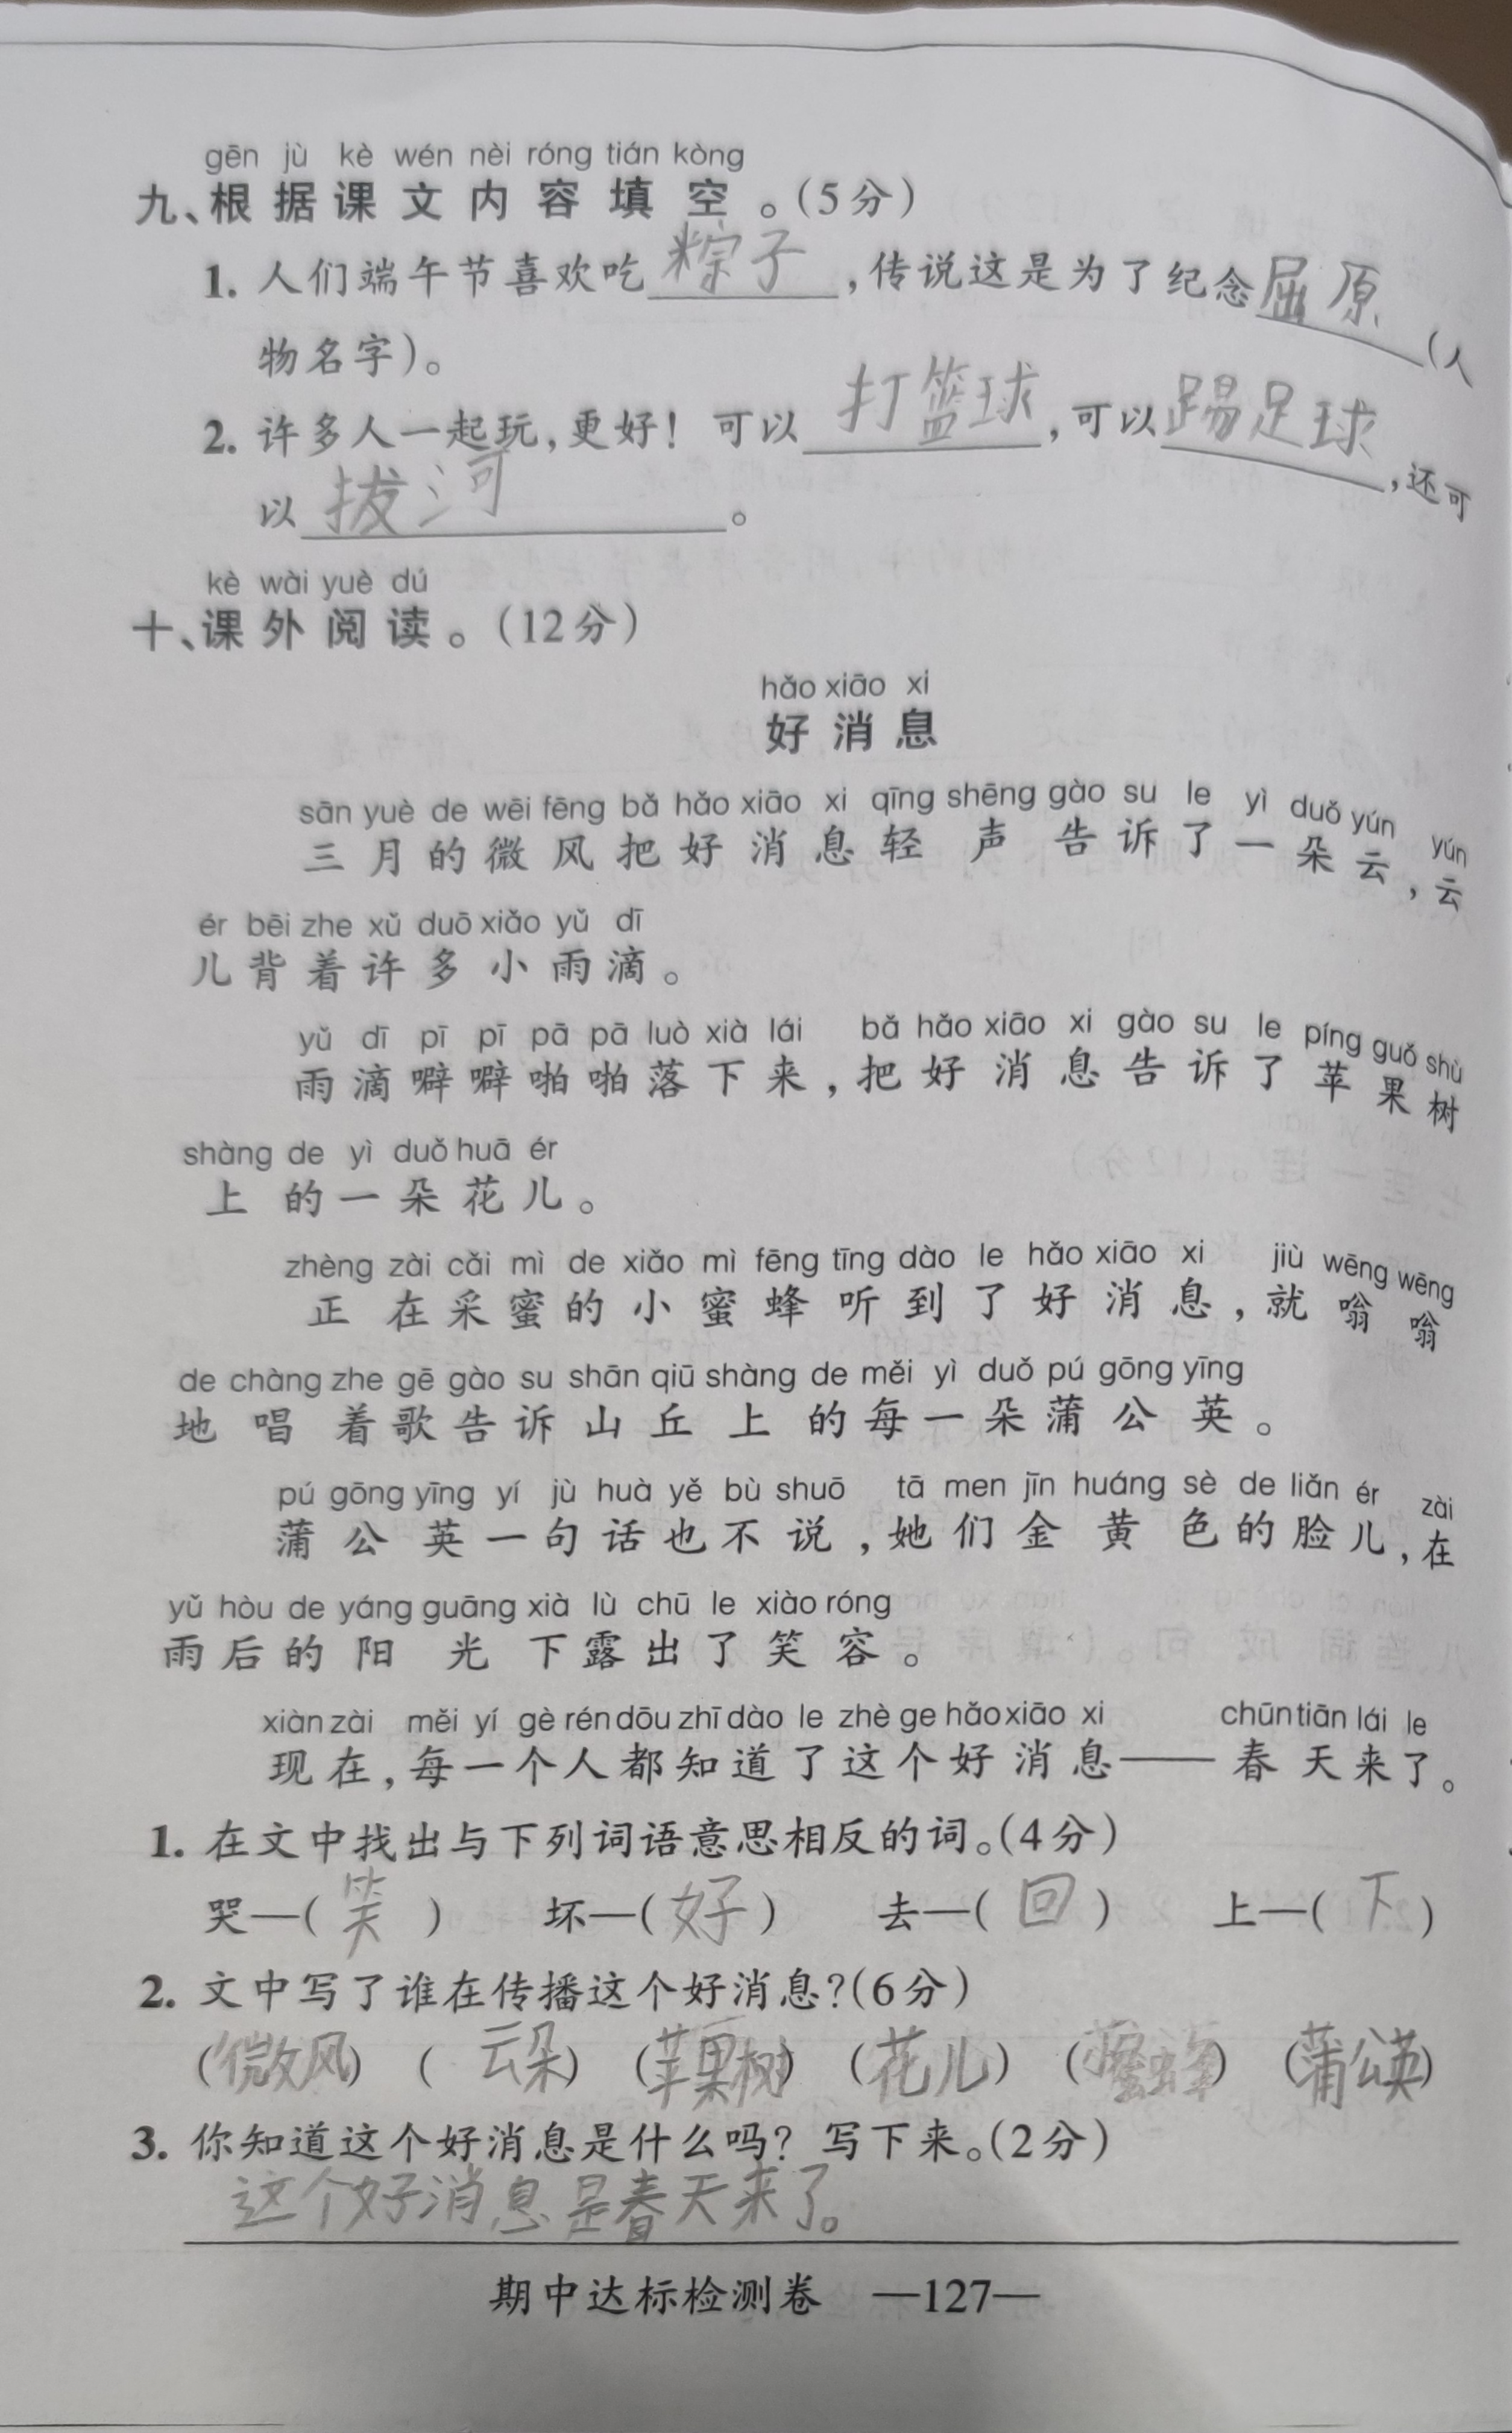 gēn jù kè wén nèi róng tián kòng
九、根据课文内容填空。(5分)
1. 人们端午节喜欢吃粽子,传说这是为了纪念屈原(人
物名字)。
2. 许多人一起玩,更好!可以打篮球,可以踢足球,还可
以拔河。
kè wài yuè dú
十、课外阅读。(12分)
hǎo xiāo xi
好消息
sān yuè de wēi fēng bǎ hǎo xiāo xi qīng shēng gào su le yì duǒ yún yún
三月的微风把好消息轻声告诉了一朵云,云
ér bēi zhe xǔ duō xiǎo yǔ dī
儿背着许多小雨滴。
yǔ dī pī pī pā pā luò xià lái bǎ hǎo xiāo xi gào su le píng guǒ shù
雨滴噼噼啪啪落下来,把好消息告诉了苹果树
shàng de yì duǒ huā ér
上的一朵花儿。
zhèng zài cǎi mì de xiǎo mì fēng tīng dào le hǎo xiāo xi jiù wēng wēng
正在采蜜的小蜜蜂听到了好消息,就嗡嗡
de chàng zhe gē gào su shān qiū shàng de měi yì duǒ pú gōng yīng
地唱着歌告诉山丘上的每一朵蒲公英。
pú gōng yīng yí jù huà yě bù shuō tā men jīn huáng sè de liǎn ér zài
蒲公英一句话也不说,她们金黄色的脸儿,在
yǔ hòu de yáng guāng xià lù chū le xiào róng
雨后的阳光下露出了笑容。
xiàn zài měi yí gè rén dōu zhī dào le zhè ge hǎo xiāo xi chūn tiān lái le
现在,每一个人都知道了这个好消息——春天来了。
1. 在文中找出与下列词语意思相反的词。(4分)
哭—(笑) 坏—(好) 去—(回) 上—(下)
2. 文中写了谁在传播这个好消息?(6分)
(微风) (云朵) (苹果树) (花儿) (小蜜蜂) (蒲公英)
3. 你知道这个好消息是什么吗?写下来。(2分)
这个好消息是春天来了。
期中达标检测卷 —127—